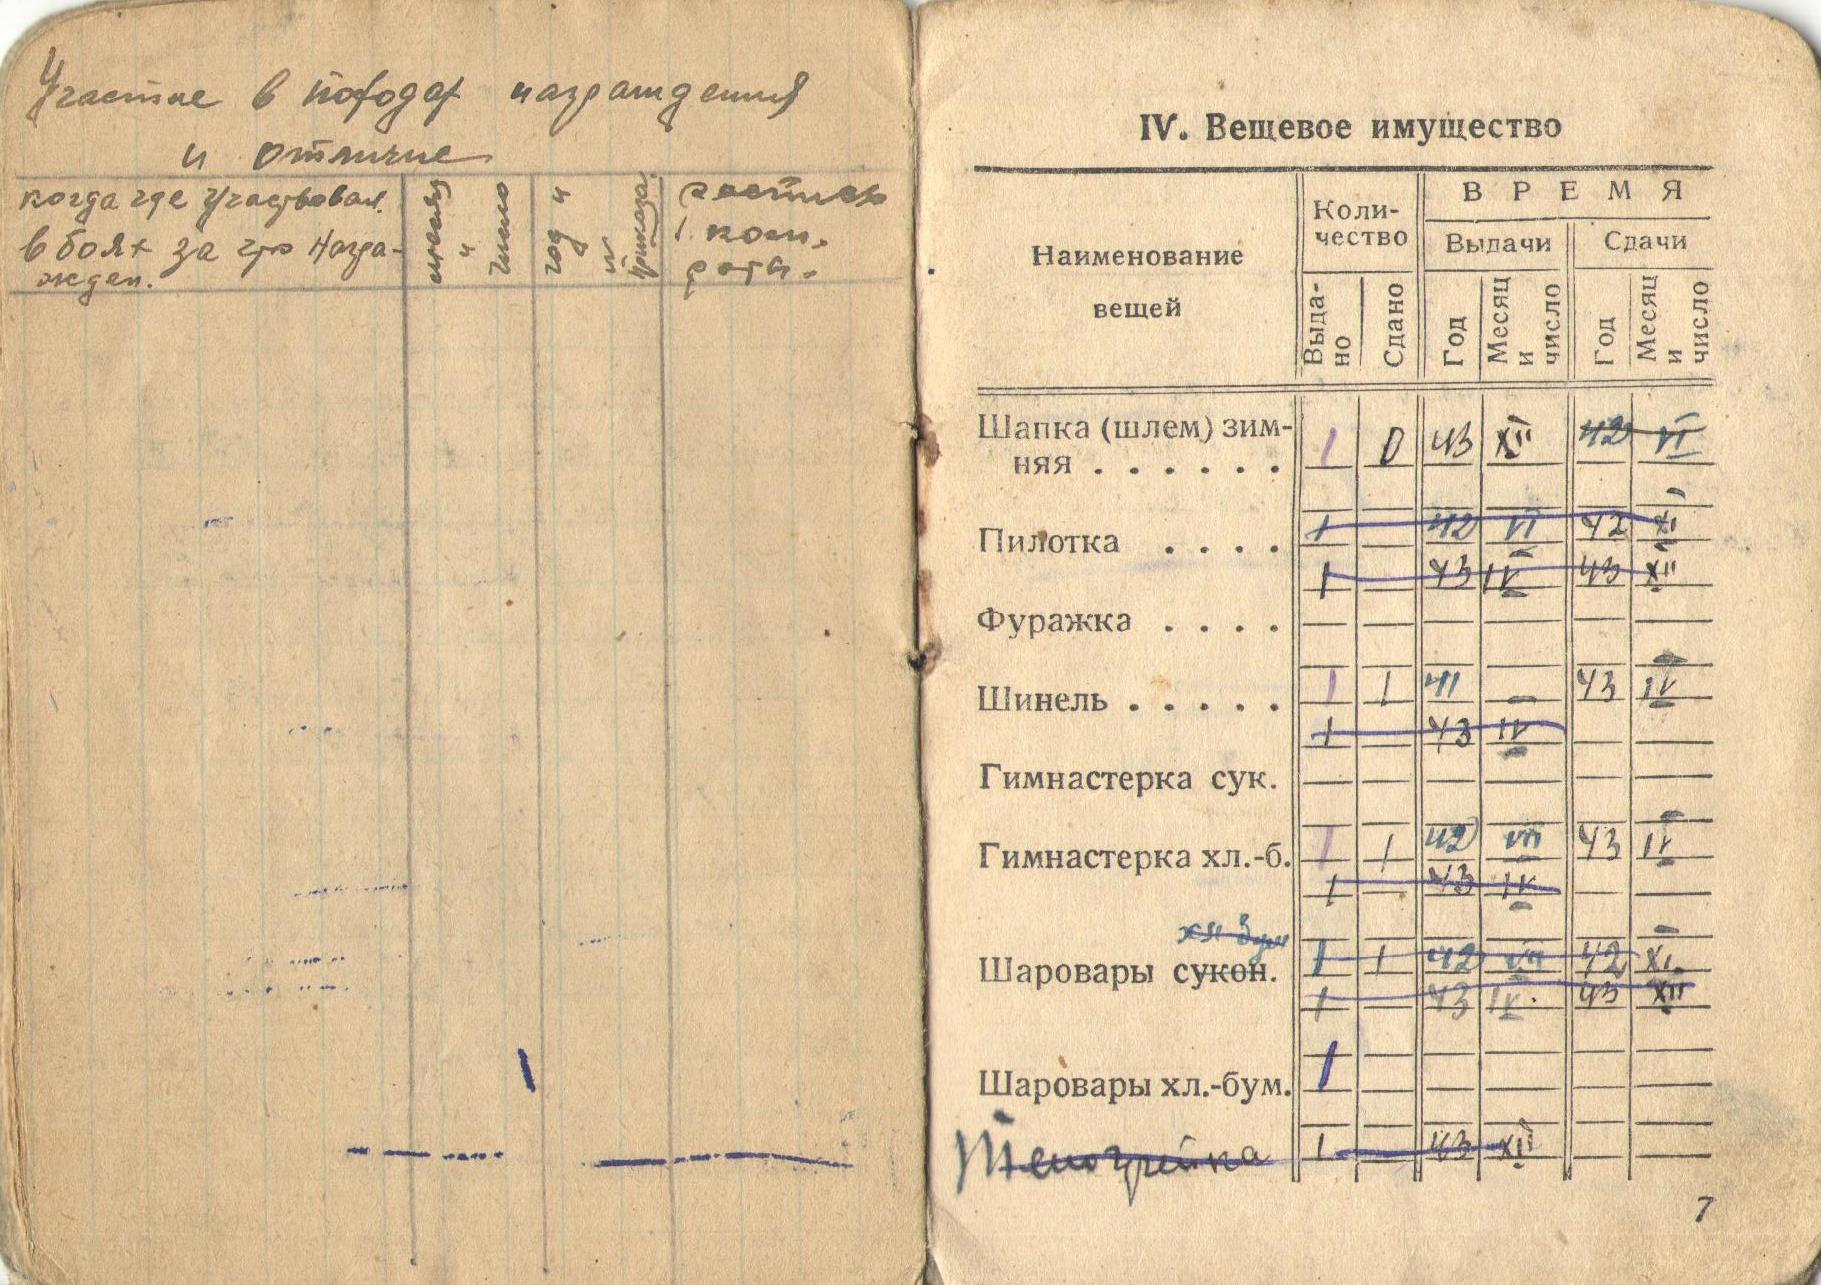 Участие в походах награждения
и отличие
когда где участвовал.
в боях за что Награ-
жден.
месяц
и
число
год и
№
приказа
1. ком.
роты.
IV. Вещевое имущество
Наименование
вещей
Коли-
чество
ВРЕМЯ
Выдачи
Сдачи
Выда-
но
Сдано
Год
Месяц
и
число
Год
Месяц
и
число
Шапка (шлем) зим-
няя . . . . . . 1 0 43 XII 42 VI
1 42 VI 42 XI
Пилотка . . . .
1 43 IV 43 XII
Фуражка . . . .
Шинель . . . . . 1 1 41 — 43 IV
1 43 IV
Гимнастерка сук.
Гимнастерка хл.-б. 1 1 42 VII 43 IV
1 43 IV
хл бум
Шаровары сукон. 1 1 42 VII 42 XI
1 43 IV 43 XII
Шаровары хл.-бум. 1
Телогрейка 1 43 XII
7